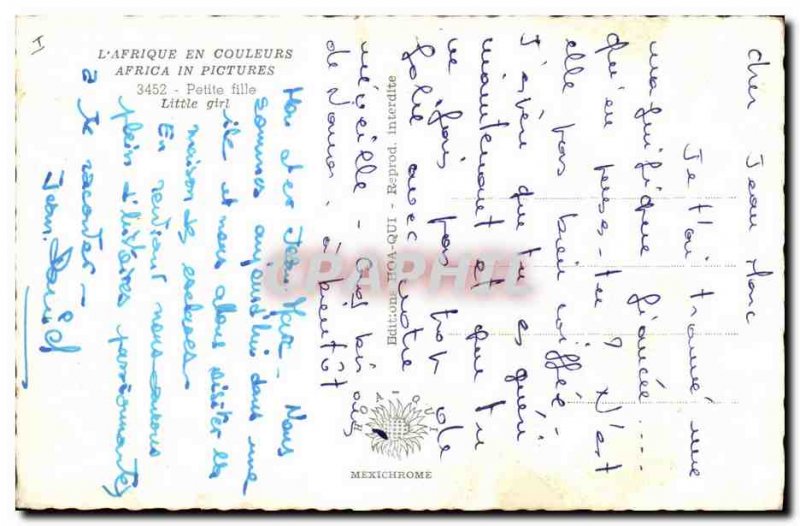 L'AFRIQUE EN COULEURS
AFRICA IN PICTURES
3452 - Petite fille
Little girl
Editions HOA-QUI - Reprod. Interdite
HOA QUI
MEXICHROME
CPAPHIL
Cher Jean Marc
Je t'ai trouvé une
magnifique fiancée....
qu'en penses-tu ? N'est
elle pas bien coiffée -
J'espère que tu es guéri
maintenant et que tu
ne fais pas trop de
folie avec votre
- Gros bis
ous
de Nana, à bientôt
Mon cher Jean Marc - Nous
sommes aujourd'hui dans une
île et nous allons visiter la
maison des esclaves -
En rentrant nous aurons
plein d'histoires passionnantes
à te raconter -
Jean Daniel